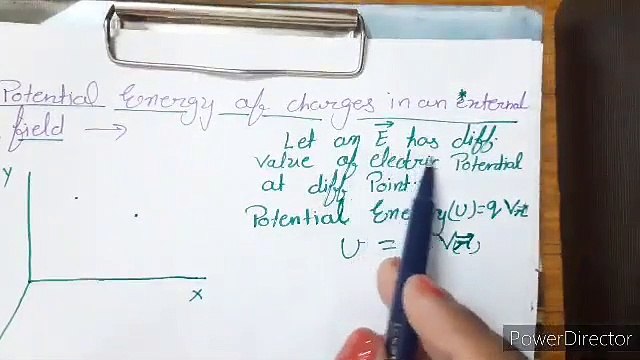 Potential Energy of charges in an external
field →
Let an E⃗ has diff.
value of electric Potential
at diff Point.
Potential Energy(U)=q Vr⃗
U = V(r⃗)
Y
X
PowerDirector